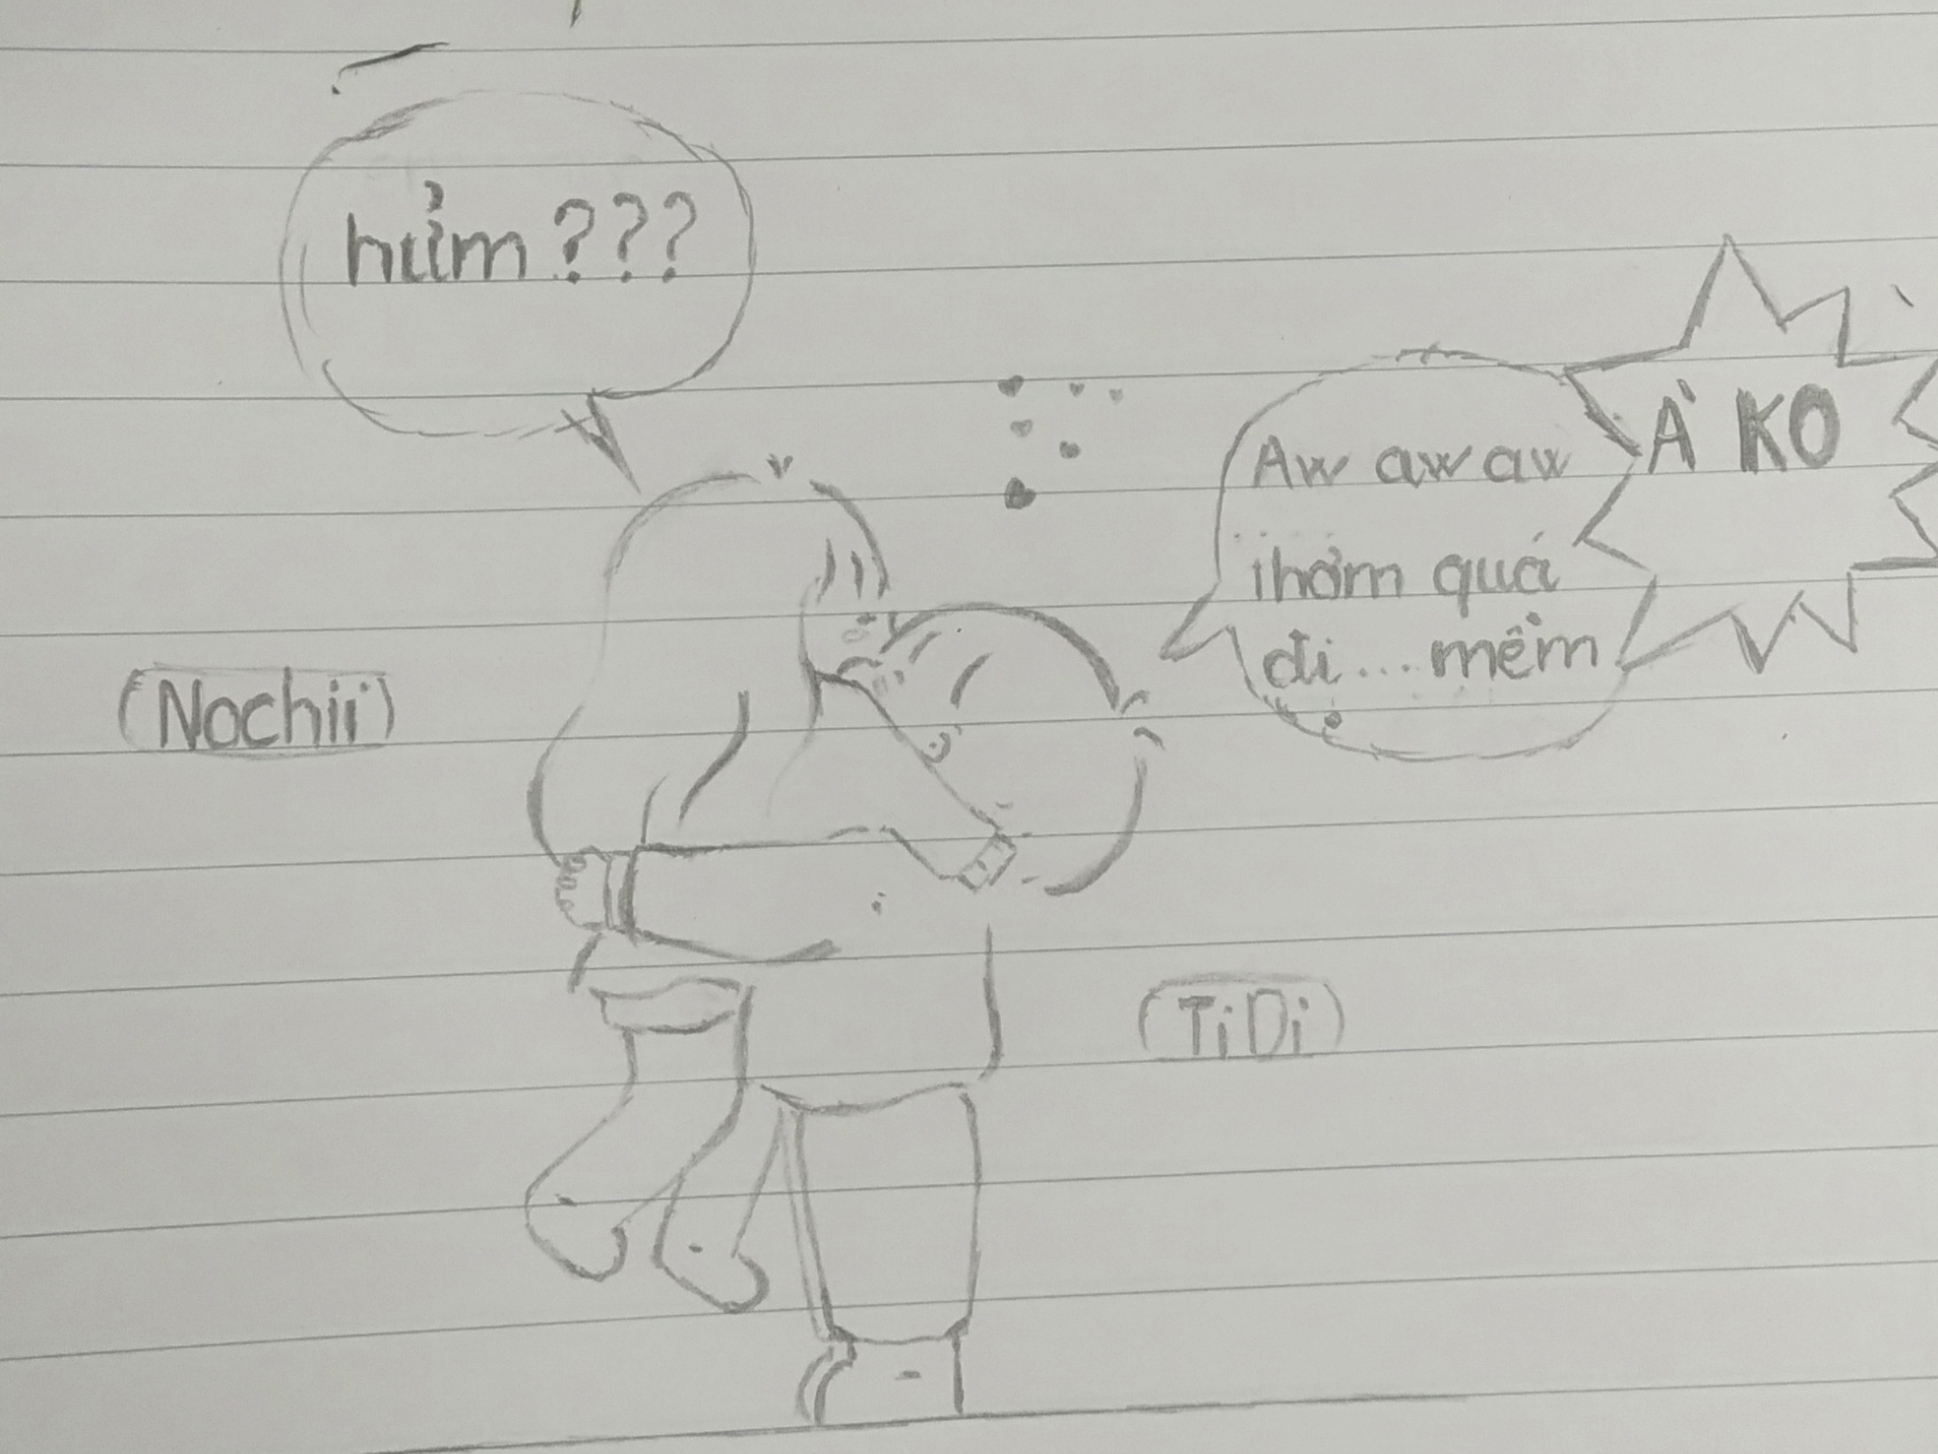 hửm ???
À KO
Aw aw aw
thơm quá
đi... mềm
(Nochii)
(TiDi)